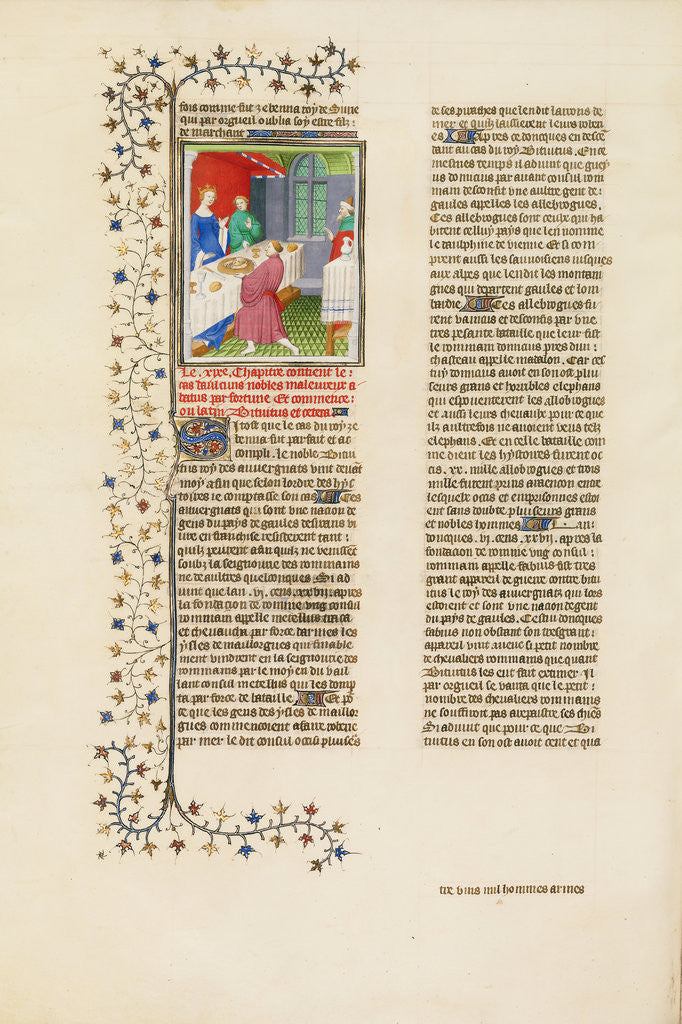 fois comme fut zebenna roy de Surie
qui par orgueil oublia soy estre filz
de marchant
Le .xixe. Chapitre contient le
cas daulcuns nobles maleureux a
batus par fortune Et commence
ou latin Bituitus et cetera
Si tost que le cas du roy ze
benna fut parfait et ac
compli. le noble Bitui
tus roy des auvergnats vint devant
moy afin que selon lordre des hys
toires ie comptasse son cas Ces
auvergnats qui sont une nacion de
gens du pays de gaules desirans vi
vre en franchise resisterent tant
quilz peurent afin quilz ne venissent
soubz la seignourie des rommains
ne de aultres quelconques Si ad
vint que lan .vi. cens .xxvii. apres
la fondacion de romme ung consul
rommain appelle metellus
et chevaucha par force darmes les
ysles de maillorgues qui finable
ment vindrent en la seignourie des
rommains par le moyen du vail
lant consul metellus qui les domp
ta par force de bataille Et po
ce que les gens des ysles de maillor
gues commencoient a faire roberie
par mer le dit consul occist pluises
de ses pirathes que len dit larrons de
mer et quilz laisserent leurs roberi
es Apres ce doncques en descen
dant au cas du roy Bituitus. En ce
mesmes temps il advint que guey
us domicius par avant consul rom
main desconfit une aultre gent de
gaules appelles les allebrogues.
Ces allebrogues sont ceulx qui ha
bitent celluy pays que len nomme
le daulphine de vienne Et si com
prent aussi les savoisiens iusques
aux alpes que len dit les montain
gnes qui departent gaules et lom
bardie Ces allebrogues fu
rent vaincus et desconfis par une
tres pesante bataille que leur fist
le rommain domicius pres dun
chasteau appelle vindalon. Car ces
tuy domicius avoit en son ost pluis
seurs grans et horribles elephans
qui espouenterent les allobrogues
et aussi leurs chevaulx pour ce que
ilz aultresfois ne avoient veus telz
elephans. Et en celle bataille com
me dient les hystoires furent oc
cis .xx. mille allobrogues et trois
mille furent prins a rencon entre
lesquelx occis et emprisonnes estoi
ent sans doubte pluiseurs grans
et nobles hommes Lan
doncques .vi. cens .xxvii. apres la
fondacion de romme ung consul
rommain appelle fabius fist tres
grant appareil de guerre contre bitui
tus le roy des auvergnats qui lors
estoient et sont une nacion de gent
du pays de gaules. Cestui doncques
fabius non obstant son tresgrant
appareil vint avec si petit nombre
de chevaliers rommains que quant
Bituitus les eut fait extimer Il
par orgueil se vanta que le petit
nombre des chevaliers rommains
ne souffiroit pas a repaistre ses chiens
Si advint que pour ce que Bi
tuitus en son ost avoit cent et qua
tre vins mil hommes armes